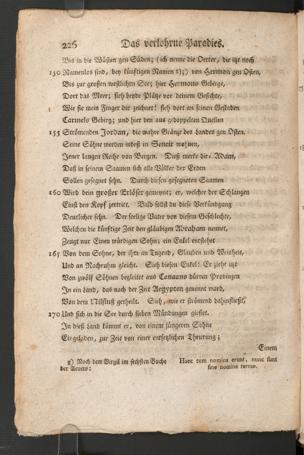 226 Das verlohrne Paradies.
Bis in die Wüsten gen Süden; (ich nenne die Oerter, die itzt noch
150 Namenlos sind, bey künftigen Namen g);) von Hermon gen Osten,
Bis zur großen westlichen See; hier Hermons Gebirge,
Dort das Meer; sieh beyde Plätze vor deinem Gesichte,
Wie sie mein Finger dir zeichnet! sieh dort an seinen Gestaden
Carmels Gebirg; und hier den aus gedoppelten Quellen
155 Strömenden Jordan, die wahre Gränze des Landes gen Osten.
Seine Söhne werden indeß in Senir wohnen,
Jener langen Reihe von Bergen. Dieß merke dir, Adam,
Daß in seinem Saamen sich alle Völker der Erden
Sollen gesegnet sehn. Durch diesen gesegneten Saamen
160 Wird dein großer Erlöser gemeynt; er, welcher der Schlangen
Einst den Kopf zertritt. Bald sollst du diese Verkündigung
Deutlicher sehn. Der seelige Vater von diesem Geschlechte,
Welchen die künftige Zeit den gläubigen Abraham nennet,
Zeugt nur Einen würdigen Sohn; ein Enkel entstehet
165 Von dem Sohne, der ihm an Tugend, Glauben und Weisheit,
Und an Nachruhm gleicht. Sich diesen Enkel! Er zieht itzt
Von zwölf Söhnen begleitet aus Canaans dürren Provinzen
In ein Land, das nach der Zeit Aegypten genennt ward,
Von dem Nilfluß getheilt. Sieh, wie er strömend dahinfließt,
170 Und sich in die See durch sieben Mündungen gießet.
In dieß Land kömmt er, von einem jüngeren Sohne
Eingeladen, zur Zeit von einer entsetzlichen Theurung;
Einem
g) Noch dem Virgil im sechsten Buche der Aeneis:
Haec tum nomina erunt, nunc sunt sine nomine terrae.